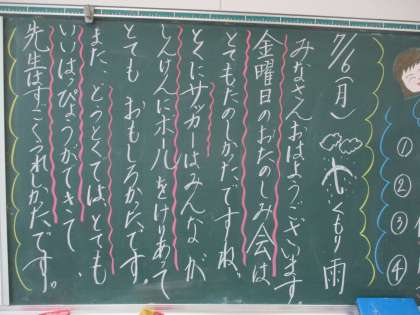 7/6(月) くもり 雨
みなさんおはようございます。
金曜日のおたのしみ会は
とてもたのしかったですね。
とくにサッカーはみんなが
しんけんにボールをけりあって
とてもおもしろかったです。
また、どうとくでは、とても
いいはっぴょうができて
先生はすごくうれしかったです。
①
②
③
④